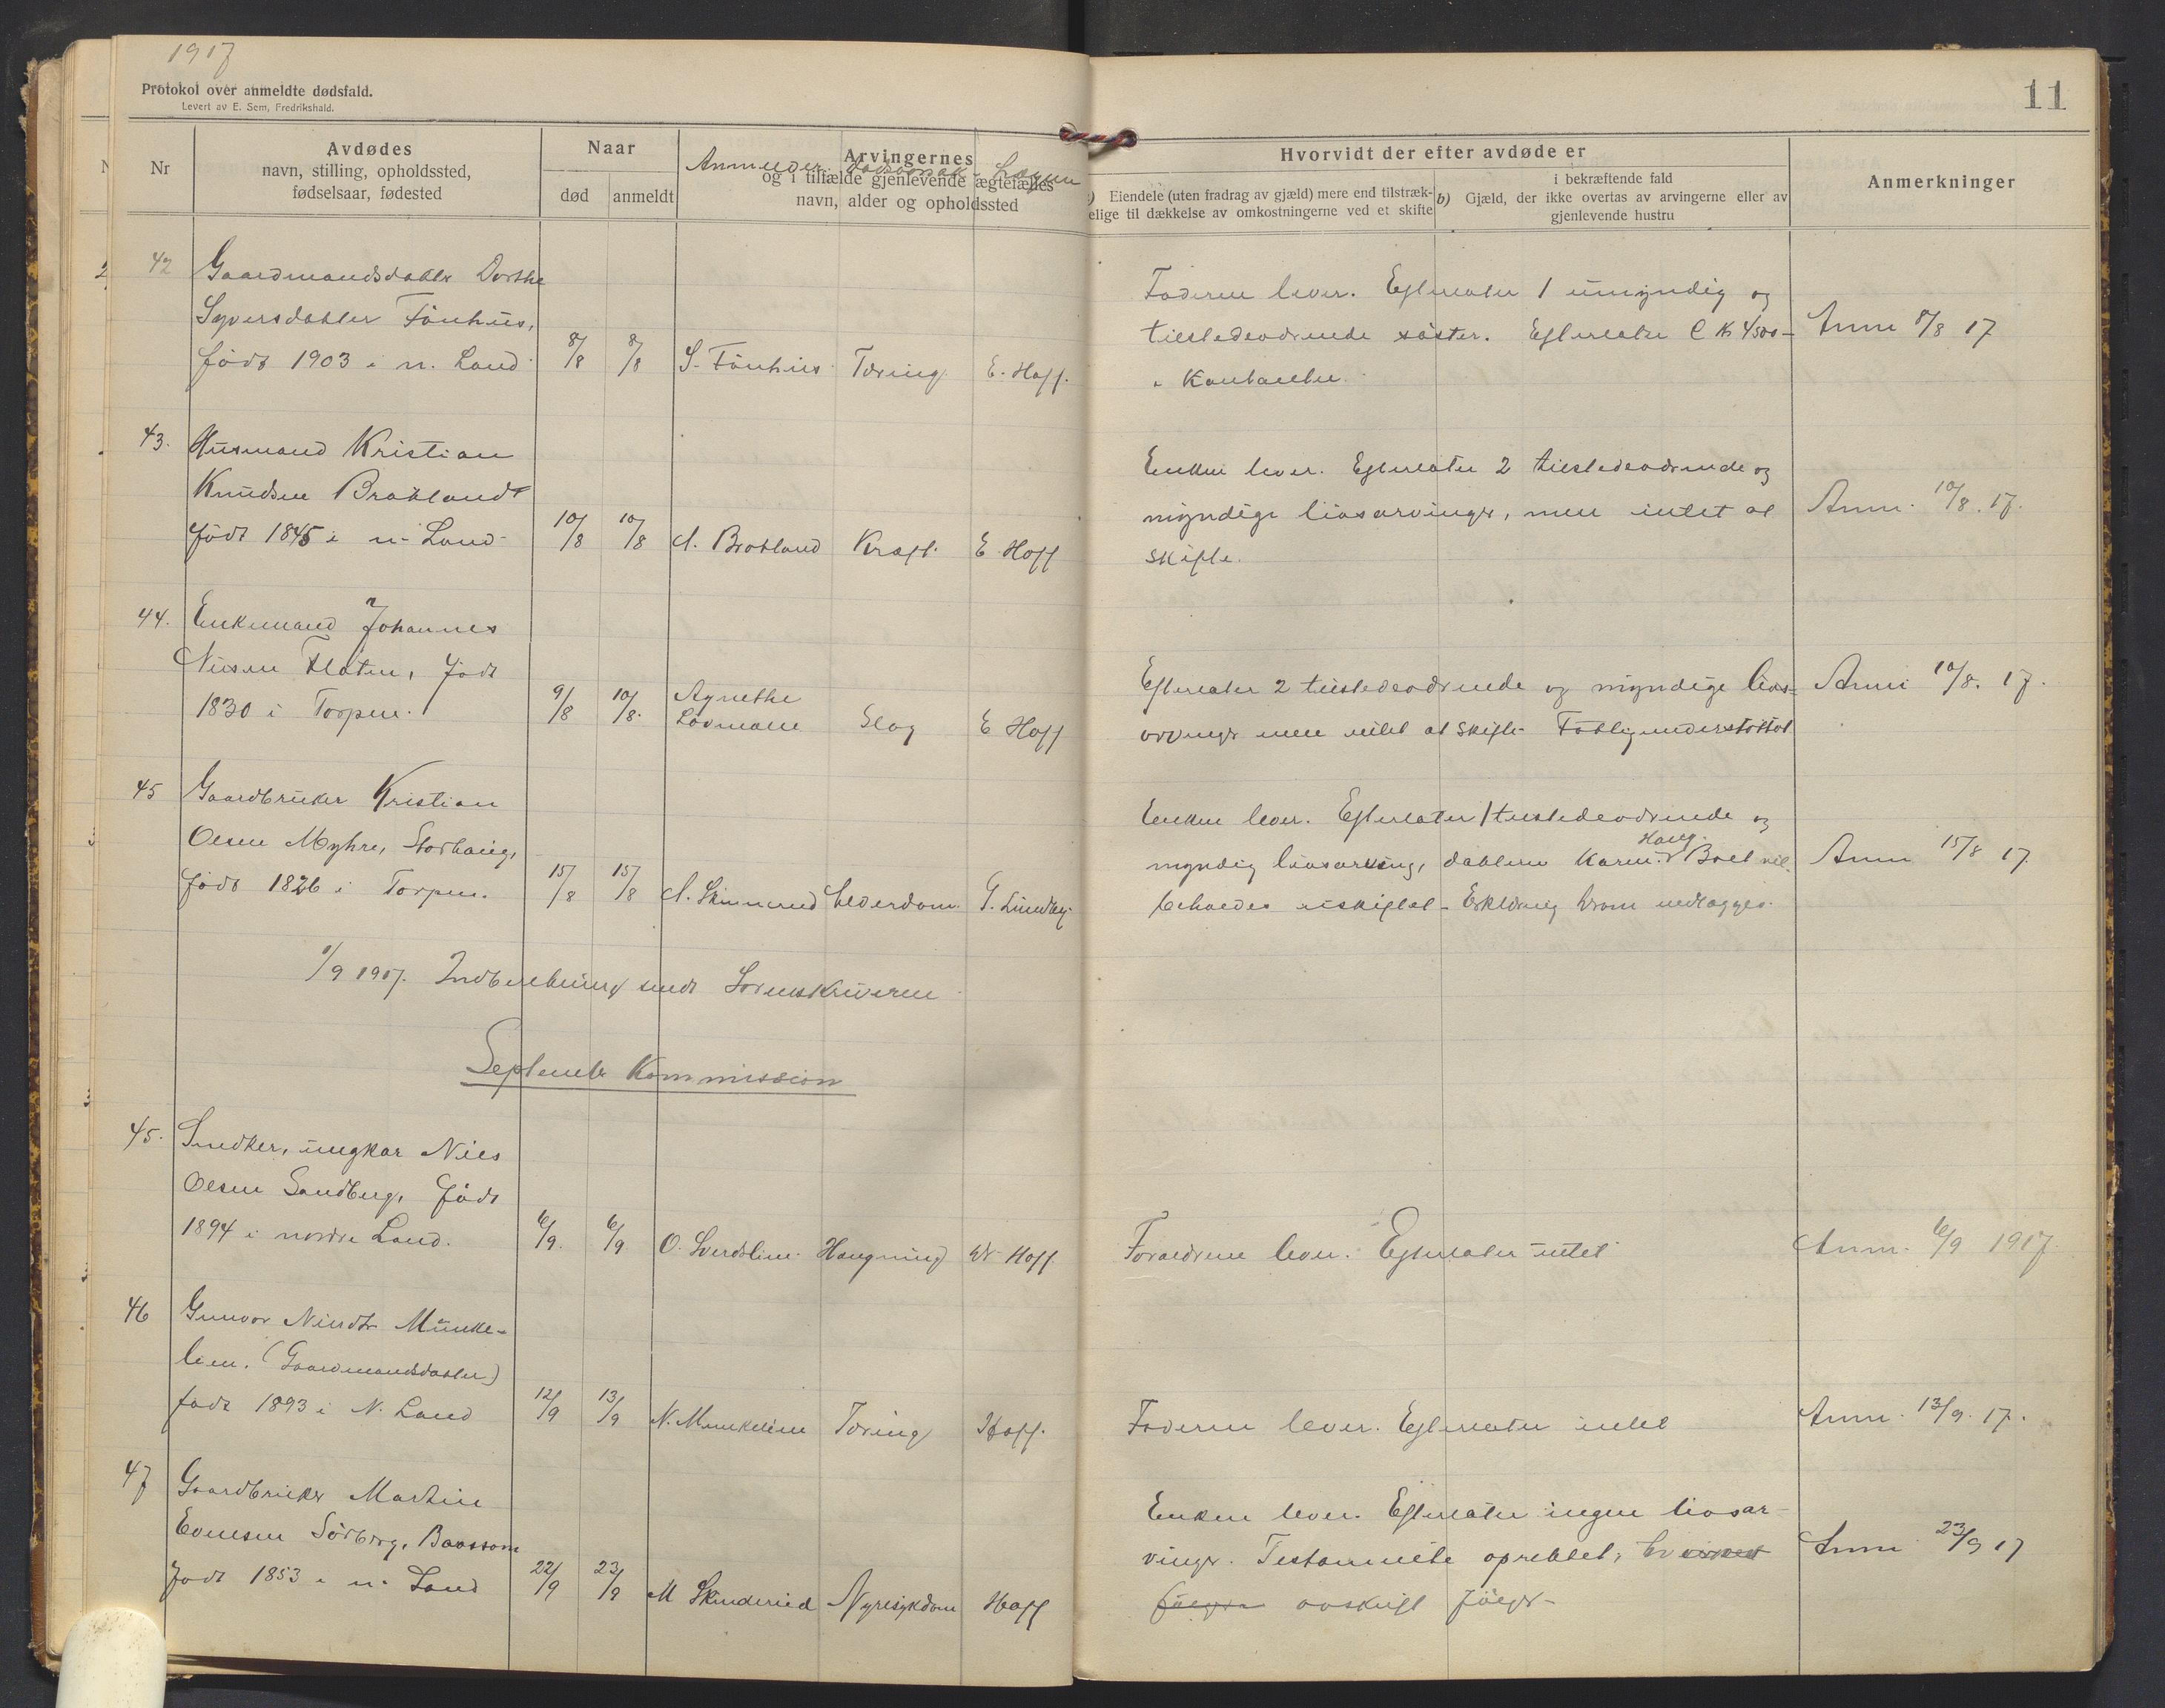 1917
Protokol over anmeldte dødsfald.
Levert av E. Sem, Fredrikshald.
11
Nr
Avdødes
navn, stilling, opholdssted,
fødselsaar, fødested
Naar
død
anmeldt
Anmelder dødsorsak Lægen
Arvingernes
og i tilfælde gjenlevende ægtefælles
navn, alder og opholdssted
Hvorvidt der efter avdøde er
Eiendele (uten fradrag av gjæld) mere end tilstræk-
elige til dækkelse av omkostningerne ved et skifte
i bekræftende fald
b) Gjæld, der ikke overtas av arvingerne eller av
gjenlevende hustru
Anmerkninger
42 Gaardmandsdatter Dorthe
Syversdatter Fönhus,
født 1903 i n. Land 8/8 8/8 S. Fönhus Tæring E. Hoff.
Faderen lever. Efterlater 1 umyndig og
tilstedeværende søster. Efterlater C Kr 4500-
i Kontanter.
Anm 8/8 17
43. Husmand Kristian
Knudsen Bratland
født 1845 i n. Land 10/8 10/8 A. Bratland Kræft E. Hoff
Enken lever. Efterlater 2 tilstedeværende og
myndige livsarvinger, men intet at
skifte.
Anm. 10/8. 17.
44. Enkemand Johannes
Nilsen Flaten, født
1830 i Torpen. 9/8 10/8. Agnethe
Lovmoen Slag E Hoff
Efterlater 2 tilstedeværende og myndige livs-
arvinger men intet at skifte. Fattigunderstøttet
Anm 10/8. 17.
45 Gaardbruker Kristian
Olsen Myhre, Storhaug,
født 1826 i Torpen. 15/8 15/8 A. Skinnerud Alderdom. G. Lundby
Enken lever. Efterlater 1 tilstedeværende og
myndig livsarving, datteren Karen Haug. Boet vil
beholdes uskiftet. Erklæring herom vedlægges.
Anm 15/8 17
1/9 1917. Indberetning sendt Sorenskriveren
September Kommission
45. Snedker, ungkar Nils
Olsen Sandberg, født
1894 i nordre Land. 6/9. 6/9 O. Sverdslien Hængning Hoff.
Forældrene lever. Efterlater intet
Anm. 6/9 1917.
46 Gunvor Nilsdtr Munke-
lien. (Gaardmandsdatter)
født 1893 i N. Land 12/9 13/9 N. Munkelien Tæring Hoff.
Faderen lever. Efterlater intet
Anm. 13/9. 17.
47 Gaardbruker Martin
Evensen Sörberg,
født 1853 i n. Land 22/9 23/9 M Skinderud Nyresykdom Hoff
Enken lever. Efterlater ingen livsar-
vinger. Testamente oprettet,
følger avskrift følger-
Anm 23/9 17